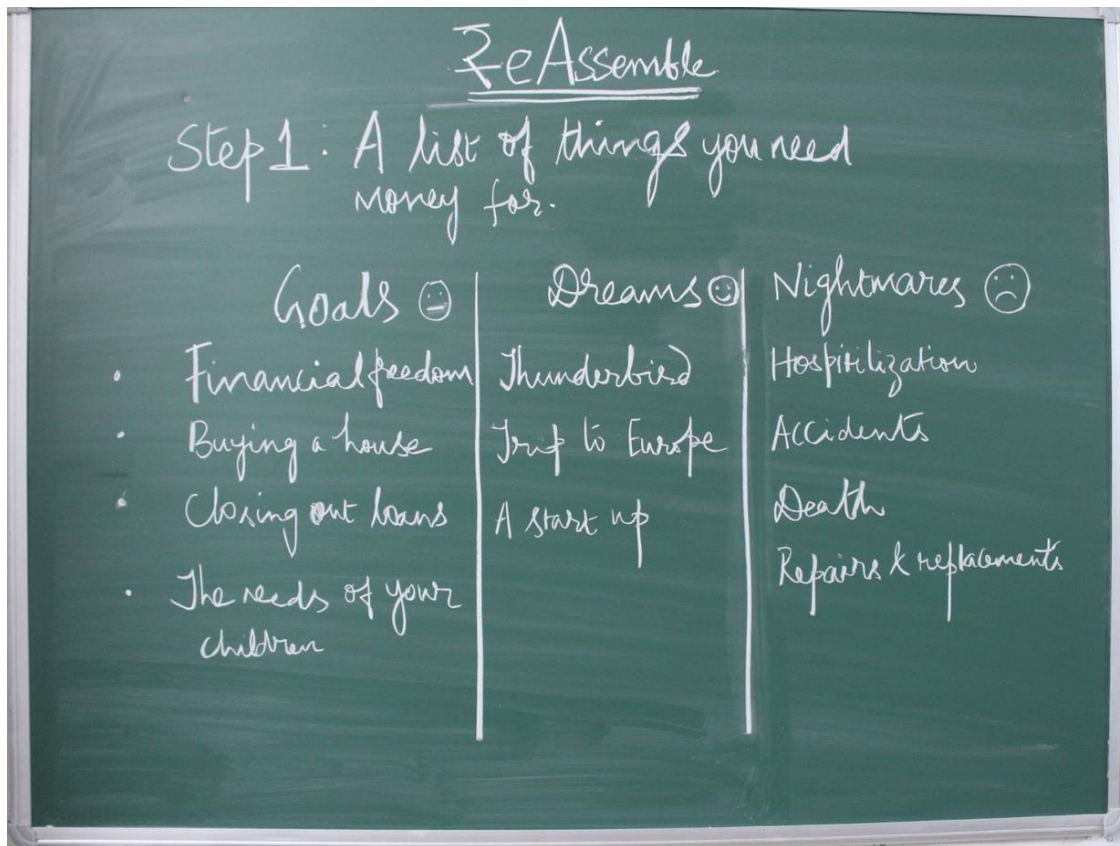 ₹eAssemble
Step 1: A list of things you need
money for.
Goals
Financial freedom
Buying a house
Closing out loans
The needs of your
children
Dreams
Thunderbird
Trip to Europe
A start up
Nightmares
Hospitilization
Accidents
Death
Repairs & replacements